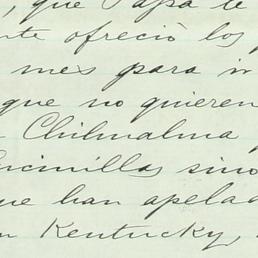 , que Papá te
nte ofreció los
mes para ir
que no quieren
Chihualma
Encinillas sino
que han apelad
n Kentucky,